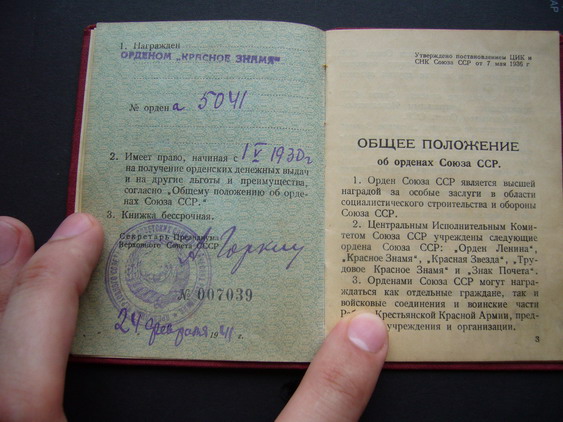 1. Награжден
ОРДЕНОМ „КРАСНОЕ ЗНАМЯ“
№ ордена 5041
2. Имеет право, начиная с 1 V 1930 г
на получение орденских денежных выдач
и на другие льготы и преимущества,
согласно „Общему положению об орде-
нах Союза ССР.“
3. Книжка бессрочная.
Секретарь Президиума
Верховного Совета СССР
А Горкин
№ 007039
24 февраля 1941 г.
Утверждено постановлением ЦИК и
СНК Союза ССР от 7 мая 1936 г
ОБЩЕЕ ПОЛОЖЕНИЕ
об орденах Союза ССР.
1. Орден Союза ССР является высшей
наградой за особые заслуги в области
социалистического строительства и обороны
Союза ССР.
2. Центральным Исполнительным Коми-
тетом Союза ССР учреждены следующие
ордена Союза ССР: „Орден Ленина“,
„Красное Знамя“, „Красная Звезда“, „Тру-
довое Красное Знамя“ и „Знак Почета“.
3. Орденами Союза ССР могут награ-
ждаться как отдельные граждане, так и
войсковые соединения и воинские части
Крестьянской Красной Армии, пред-
учреждения и организации.
3